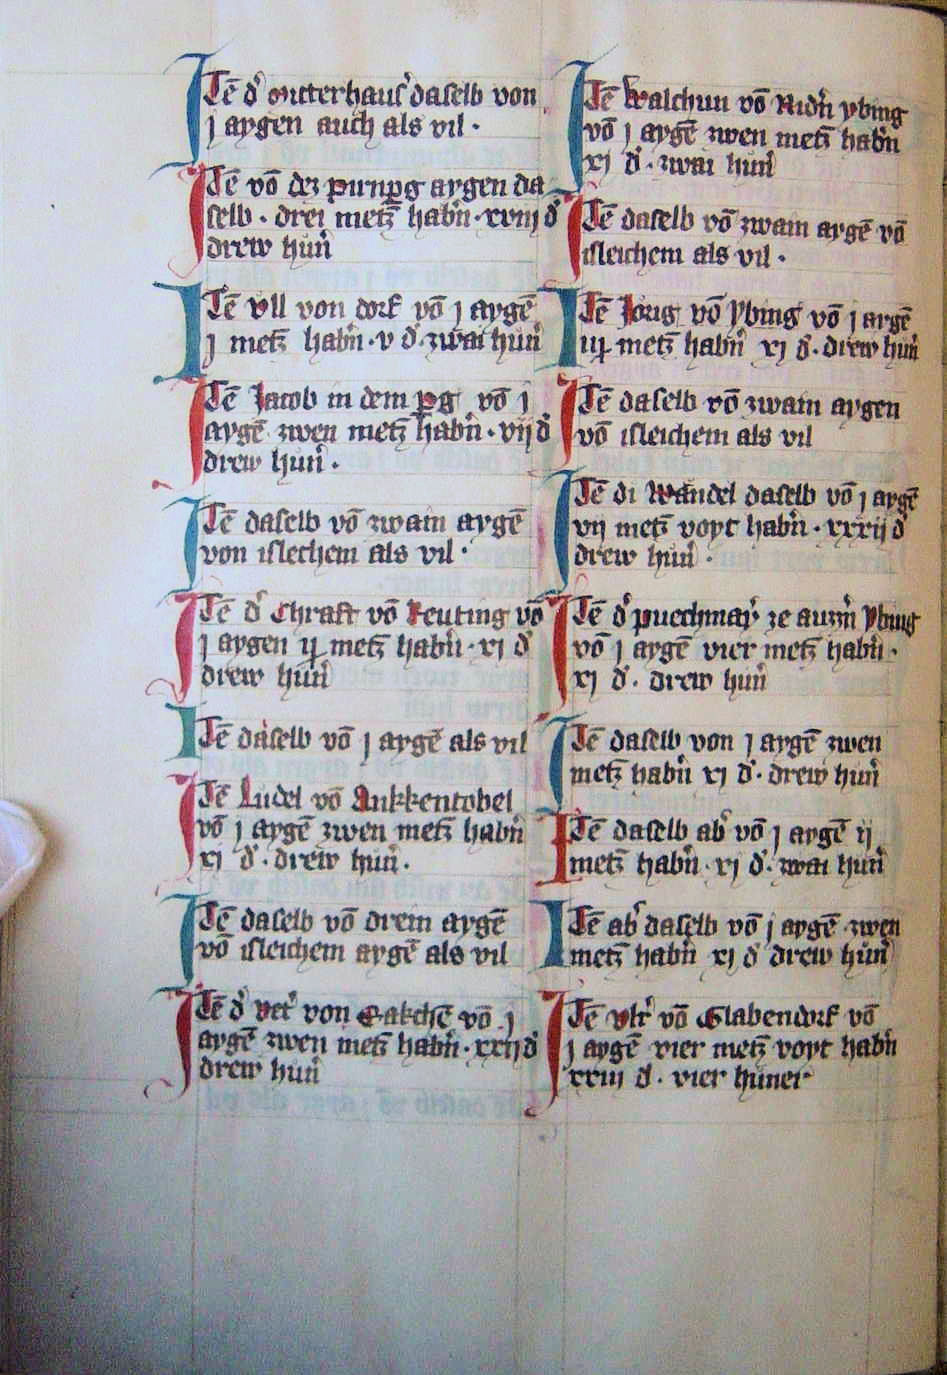 Itē d' mitterhaus' daselb von
j aygen auch als vil ·
Itē vō dez pirnpg aygen da
selb · drei metz habn̄ · xviij d'
drew hun̄
Itē vll von dorf vō j aygē
j metz habn̄ · v d' · zwai hun̄
Itē Jacob in dem pg vō j
aygē zwen metz habn̄ · vij d'
drew hun̄ ·
Itē daselb vō zwain aygē
von islechem als vil ·
Itē d' Chraft vō Reuting vō
j aygen ij metz habn̄ · xj d'
drew hun̄
Itē daselb vō j aygē als vil
Itē Ludel vō Aukkentobel
vō j aygē zwen metz habn̄
xj d' · drew hun̄ ·
Itē daselb vō drein aygē
vō isleichem aygē als vil
Itē d' von vō j
aygē zwen metz habn̄ · xxij d'
drew hun̄
Itē Walchun vō Nidn̄ ybing
vō j aygē zwen metz habn̄
xj d' · zwai hun̄
Itē daselb vō zwain aygē vō
isleichem als vil ·
Itē Jorig vō Ybing vō j aygē
metz habn̄ xj d' · drew hun̄
Itē daselb vō zwain aygen
vō isleichem als vil
Itē di Wandel daselb vō j aygē
vij metz voyt habn̄ · xxxij d'
drew hun̄ ·
Itē d' puechmay' ze auzzn̄ Ybing
vō j aygē vier metz habn̄ ·
xj d' · drew hun̄
Itē daselb von j aygē zwen
metz habn̄ xj d' · drew hun̄
Itē daselb ab' vō j aygē ij
metz habn̄ · xj d' · zwai hun̄
Itē ab' daselb vō j aygē · zwen
metz habn̄ xj d' drew hun̄
Itē vlr' vō Glabendorf vō
j aygē vier metz voyt habn̄
xxiij d' · vier huner